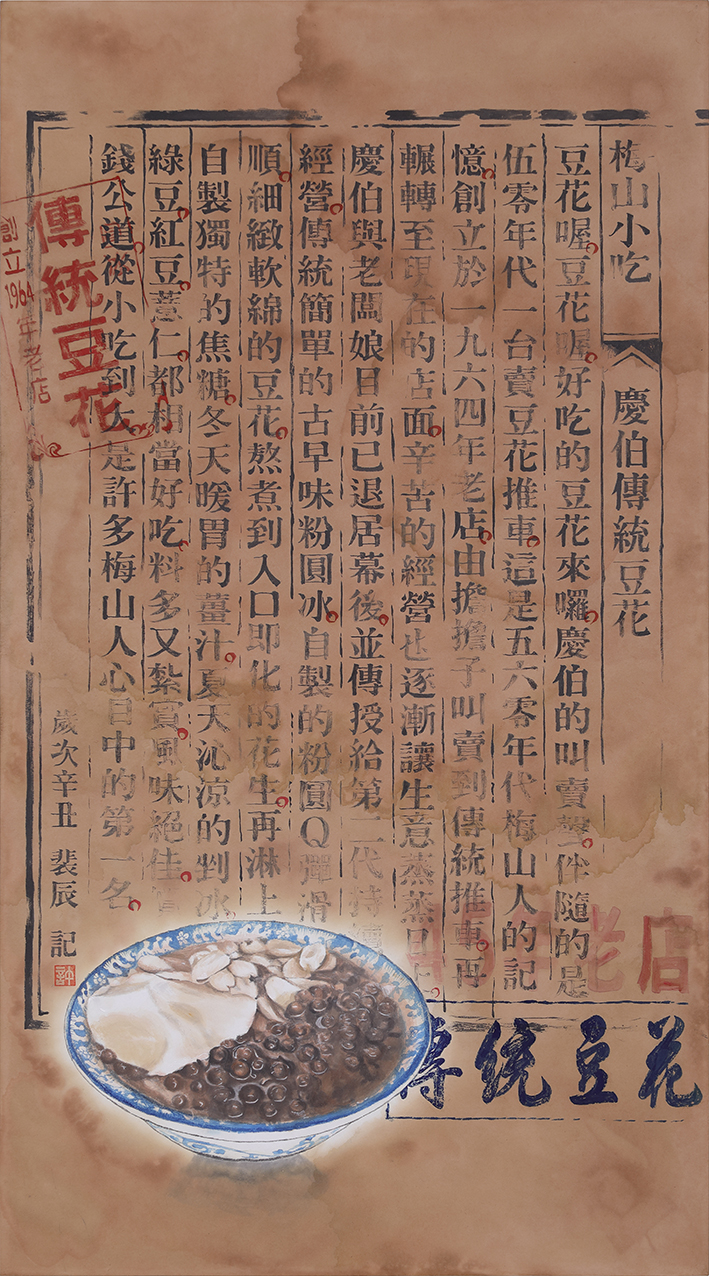 梅山小吃
慶伯傳統豆花
豆花喔。豆花喔。好吃的豆花來囉。慶伯的叫賣聲。伴隨的是
伍零年代一台賣豆花推車。這是五六零年代梅山人的記
憶。創立於一九六四年老店。由擔擔子叫賣到傳統推車。再
輾轉至現在的店面。辛苦的經營也逐漸讓生意蒸蒸日上。
慶伯與老闆娘目前已退居幕後。並傳授給第二代持續
經營。傳統簡單的古早味粉圓冰。自製的粉圓Q彈滑
順。細緻軟綿的豆花。熬煮到入口即化的花生。再淋上
自製獨特的焦糖。冬天暖胃的薑汁。夏天沁涼的剉冰
綠豆。紅豆。薏仁。都相當好吃。料多又紮實。風味絕佳。價
錢公道。從小吃到大。是許多梅山人心目中的第一名。
歲次辛丑 裴辰 記
傳統豆花
創立1964年老店
老店
傳統豆花